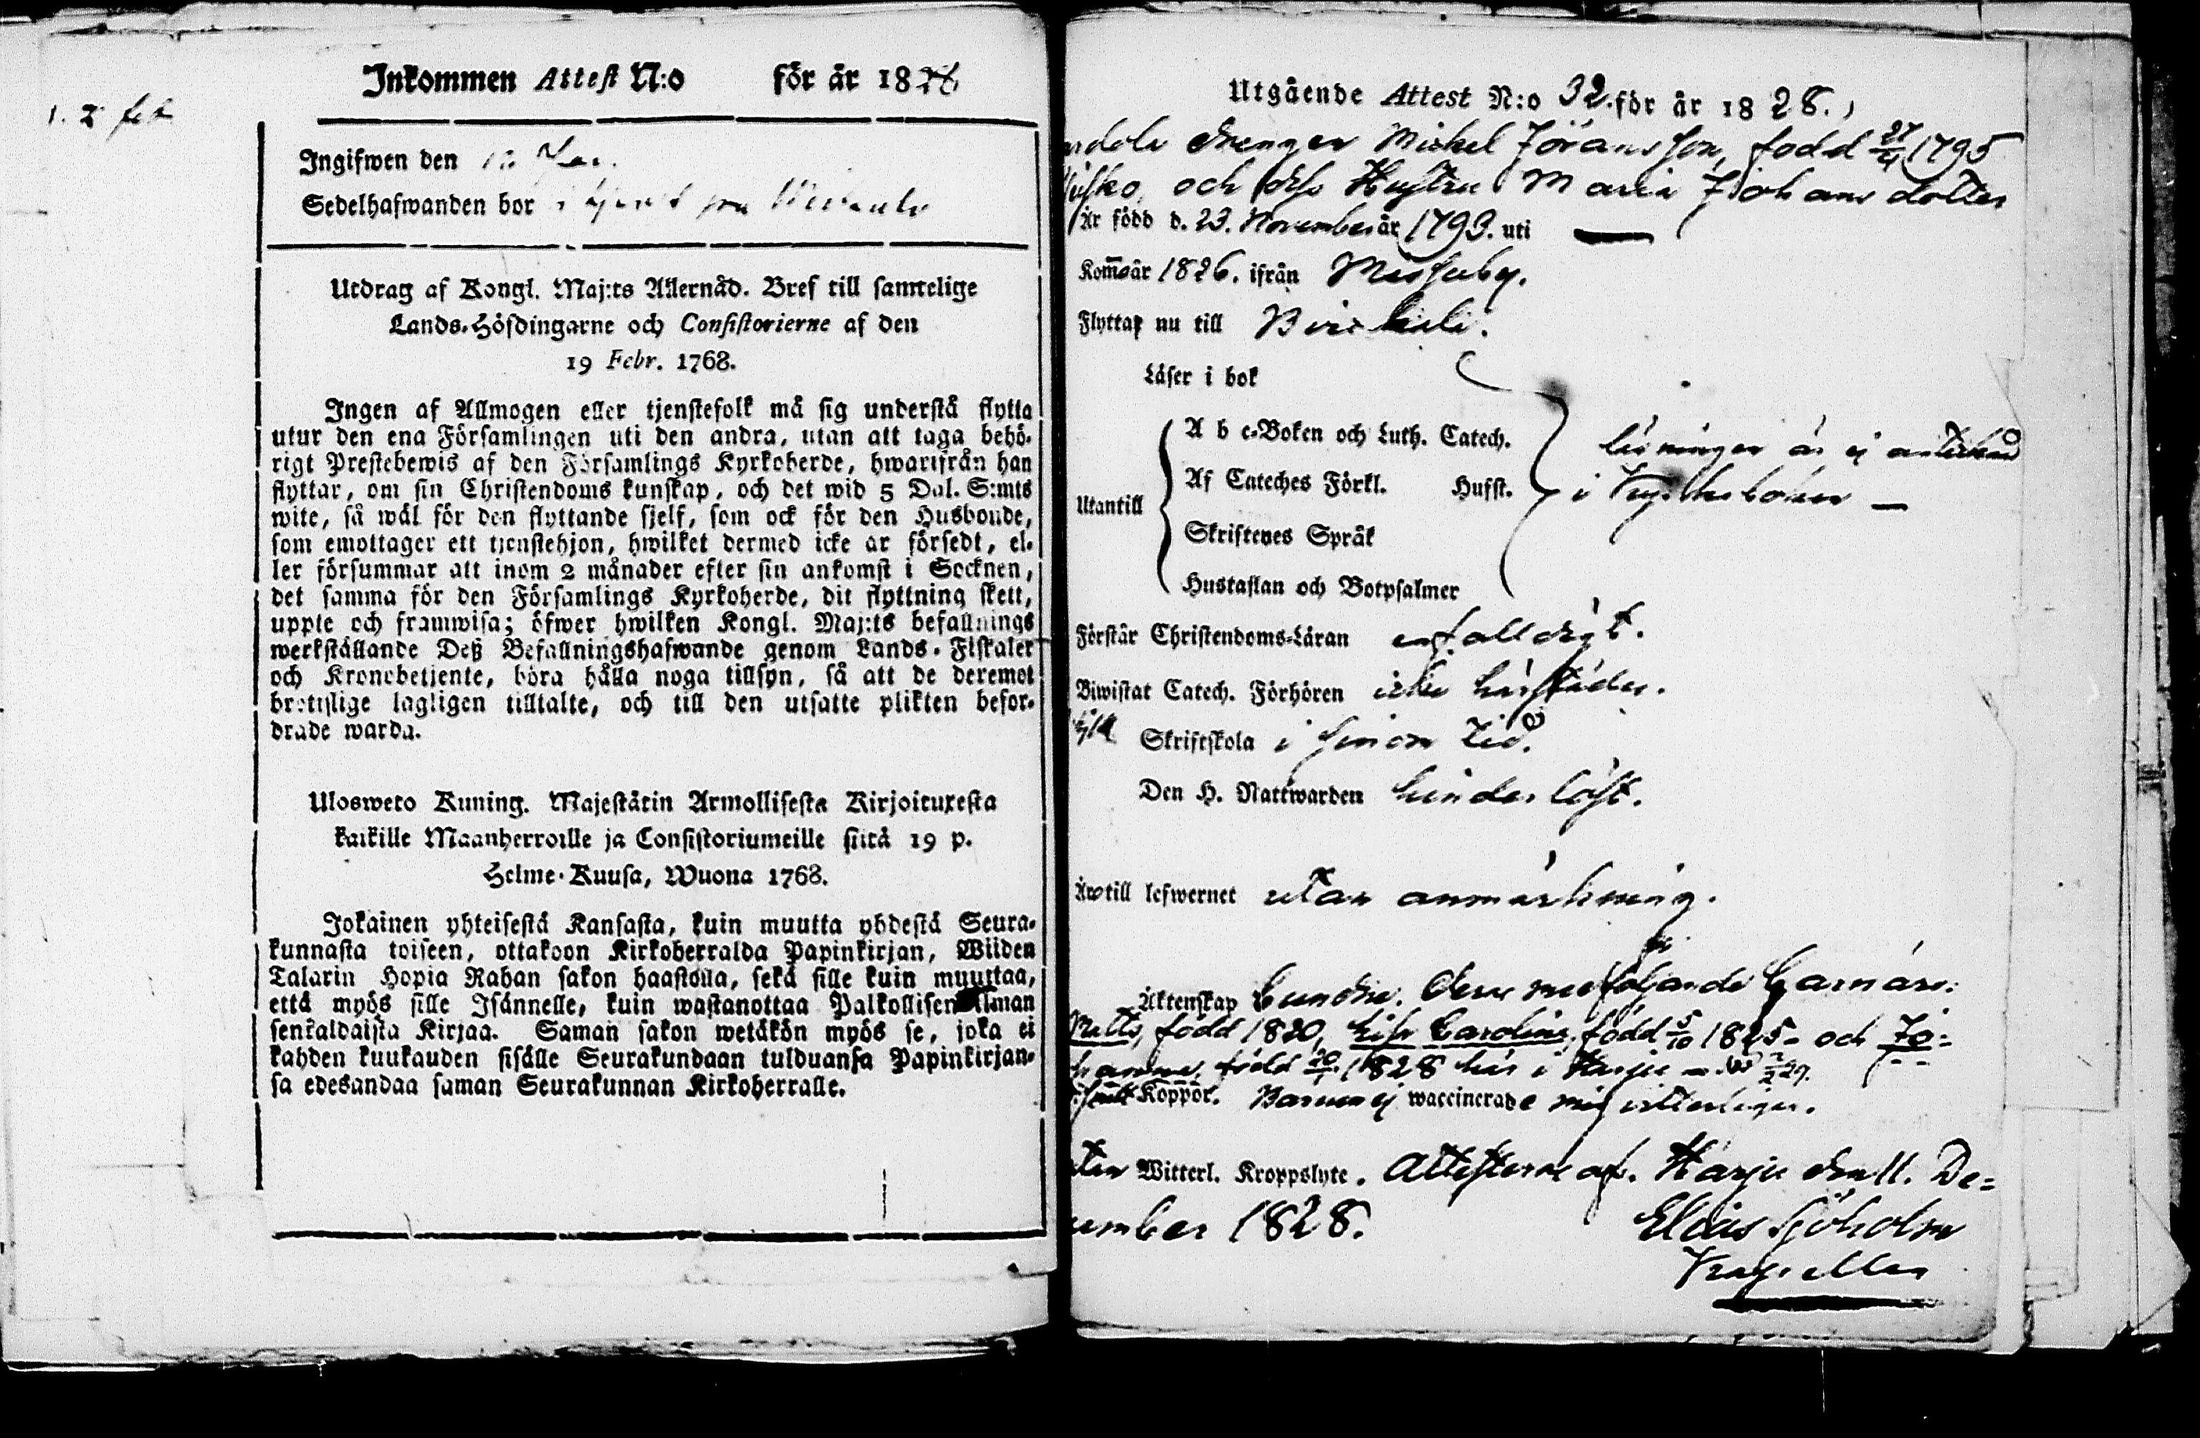 Inkommen Attest N:o för år 1828
Ingifwen den
Sedelhafwanden bor
Utdrag af Kongl. Maj:ts Allernåd. Bref till samtelige
Lands-Höfdingarne och Consistorierne af den
19 Febr. 1768.
Ingen af Allmogen eller tjenstefolk må sig understå flytta
utur den ena Församlingen uti den andra, utan att taga behö-
rigt Prestebewis af den Församlings Kyrkoherde, hwarifrån han
flyttar, om sin Christendoms kunskap, och det wid 5 Dal. S:mts
wite, så wäl för den flyttande sjelf, som ock för den Husbonde,
som emottager ett tjenstehjon, hwilket dermed icke är försedt, el-
ler försummar att inom 2 månader efter sin ankomst i Socknen,
det samma för den Församlings Kyrkoherde, dit flyttning skett,
upple och framwisa; öfwer hwilken Kongl. Maj:ts befallnings
werkställande Deß Befallningshafwande genom Lands-Fiskaler
och Kronobetjente, böra hålla noga tillsyn, så att de deremot
brottslige lagligen tilltalte, och till den utsatte plikten befor-
drade warda.
Ulosweto Kuning. Majestätin Armollisesta Kirjoituxesta
kaikille Maanherroille ja Consistoriumeille siitä 19 p.
Helme-Kuusa, Wuona 1768.
Jokainen yhteisestä Kansasta, kuin muutta yhdestä Seura-
kunnasta toiseen, ottakoon Kirkoherralda Papinkirjan, Wiiden
Talarin Hopia Rahan sakon haastolla, sekä sille kuin muuttaa,
että myös sille Isännelle, kuin wastanottaa Palkollisen ilman
senkaldaista Kirjaa. Saman sakon wetäkön myös se, joka ei
kahden kuukauden sisälle Seurakundaan tulduansa Papinkirjan-
sa edesandaa saman Seurakunnan Kirkoherralle.
Utgående Attest N:o 32 för år 1828.
drengen Michel Jöransson, född 1795
och dess Hustru Maria Johansdotter
Är född d. 23. November år 1793. uti —
Kommo år 1826. ifrån Messuby.
Flyttar nu till Birkala.
Läser i bok
Utantill
A b c-Boken och Luth. Catech.
Af Cateches Förkl. Husst.
Skriftenes Språk
Hustaflan och Botpsalmer
läsningen är ej antecknad
i Kyrkoboken —
Förstår Christendoms-Läran enfalldigt.
Biwistat Catech. Förhören icke härstädes.
Skriftskola i sinom tid.
Den H. Nattwarden hinderlöst.
Äro till lefwernet utan anmärkning.
Äktenskap bundne. Dem medföljande barn äro:
Matts, född 1820, Lisa Carolina, född 5/10 1825 och Jo-
hanna, född 1828 här i Harju
Koppor. Barnen ej waccinerade mig vitterligen.
Witterl. Kroppslyte. Attesterar af. Harju den 11. De-
cember 1828. Elias Sjöholm
Kapellan